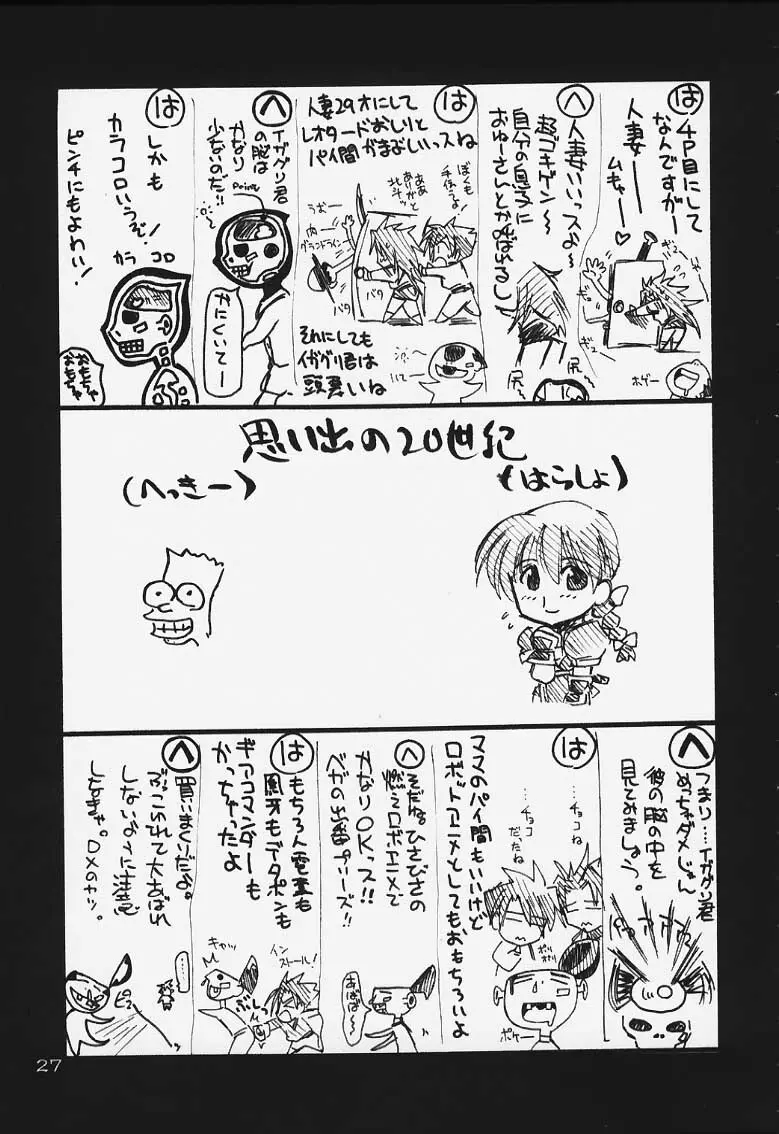 は
4P目にして
なんですがー
人妻ー
ムキャー♡
ギュ
ギュー
ホゲー
へ
人妻いいっスよ〜
超ゴキゲン〜
自分の息子に
尻
尻
は
人妻29才にして
レオタードおしりと
パイ間がまぶしいっスね
ぼくも
手伝うよ!
ああ
北斗ッ
うおー
グランドライン
バタ
バタ
それにしても
イガグリ君は
頭悪いね
へ
イガグリ君
の脳は
かなり
少ないのだ!!
Point
かにくいてー
は
しかも
カラコロいうぞ!
ピンチにもよわい!
カラ コロ
おもちゃ
おもちゃ
思い出の20世紀
(はらしょ)
(へっきー)
へ
つまり…イガグリ君
めっちゃダメじゃん
彼の脳の中を
見てみましょう。
は
…チョコね
…チョコ
だったね
ママのパイ間もいいけど
ロボットアニメとしてもおもちろいよ
ポリ
ポリ
ポケー
へ
そだね。ひさびさの
燃えロボアニメで
かなりOKっス!!
ベガの出番プリーズ!!
あばば〜
は
もちろん電童も
凰牙もデータポンも
ギアコマンダーも
かっちゃったよ
インストール!
キャッ
へ
買いまくりだよ。
ぶっこわれて大あばれ
しないように注意
しなきゃ。DXのヤツ。
27